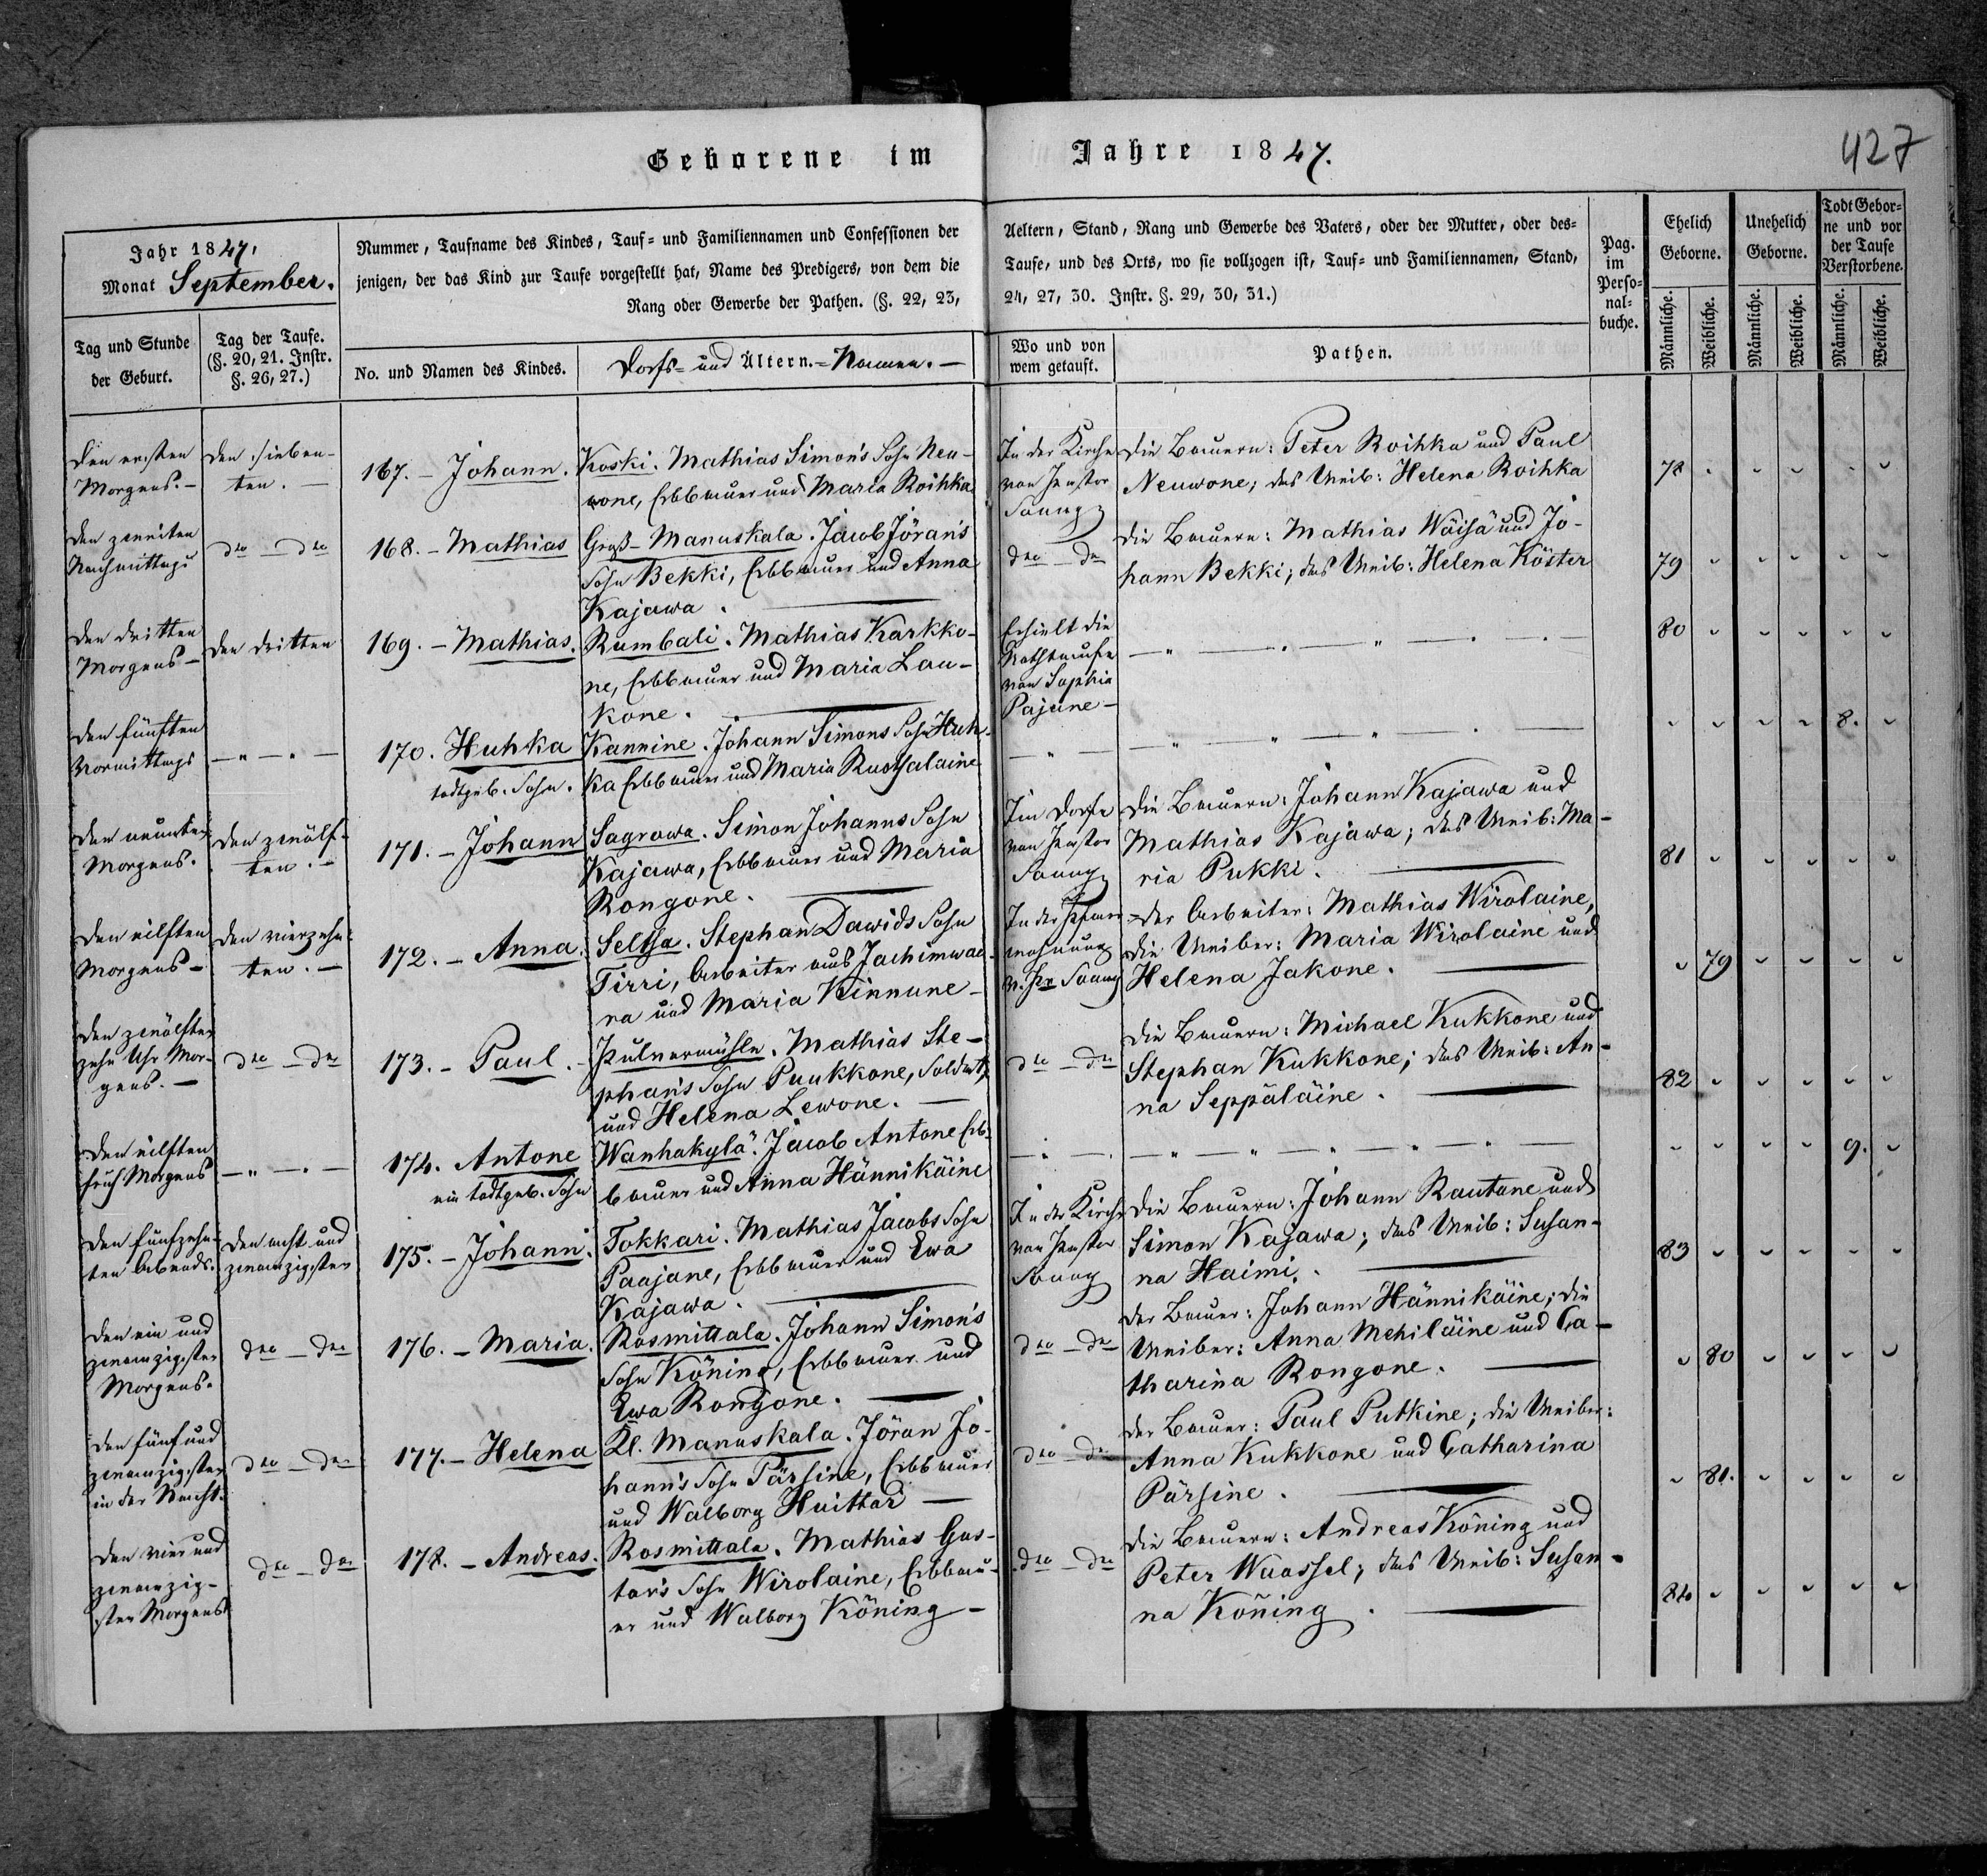 Geborene im Jahre 1847.
427
Jahr 1847,
Monat September.
Nummer, Taufname des Kindes, Tauf- und Familiennamen und Confessionen der
jenigen, der das Kind zur Taufe vorgestellt hat, Name des Predigers, von dem die
Rang oder Gewerbe der Pathen. (§. 22, 23,
Aeltern, Stand, Rang und Gewerbe des Vaters, oder der Mutter, oder des-
Taufe, und des Orts, wo sie vollzogen ist, Tauf- und Familiennamen, Stand,
24, 27, 30. Instr. §. 29, 30, 31.)
Pag.
im
Perso-
nal-
buche.
Ehelich
Geborne.
Unehelich
Geborne.
Todt Gebor-
ne und vor
der Taufe
Verstorbene.
Männliche.
Weibliche.
Männliche.
Weibliche.
Männliche.
Weibliche.
Tag und Stunde
der Geburt.
Tag der Taufe.
(§. 20, 21. Instr.
§. 26, 27.)
No. und Namen des Kindes.
Dorfs- und Altern.-Namen.-
Wo und von
wem getauft.
Pathen.
Den ersten
Morgens.-
Den sieben-
ten.-
167.- Johann.
Koski. Mathias Simon's Sohn Neu-
wone, Erbbauer und Maria Roihka
In der Kirche
von Pastor
Die Bauern: Peter Roihka und Paul
Neuwone; das Weib: Helena Roihka
78
Den zweiten
Nachmittags
dto - dto
168.- Mathias
Groß-Manuskala. Jacob Jöran's
Sohn Bekki, Erbbauer und Anna
Kajawa.
dto - dto
Die Bauern: Mathias Wäisä und Jo-
hann Bekki; das Weib: Helena Köster
79
Den dritten
Morgens-
Den dritten
169.- Mathias.
Rumbali. Mathias Karkko-
ne, Erbbauer und Maria Lau-
kone.
Erhielt die
Nothtaufe
von Sophia
Pajane-
80
Den fünften
Vormittags
170. Huhka
todtgeb. Sohn.
Kannine. Johann Simons Sohn Huh-
ka Erbbauer und Maria Rusthalaine
8.
Den neunten
Morgens.
Den zwölf-
ten.-
171.- Johann
Sagrowa. Simon Johanns Sohn
Kajawa, Erbbauer und Maria
Rongone.
Im Dorfe
von Pastor
Die Bauern: Johann Kajawa und
Mathias Kajawa; das Weib: Ma-
ria Pukki.
81
Den eilften
Morgens-
Den vierzehn-
ten.-
172.- Anna.
Seltsa. Stephan Dawids Sohn
Tirri, Arbeiter aus Jachimwaa-
ra und Maria Kinnune-
In der Pfarr-
wohnung
Der Arbeiter: Mathias Wirolaine,
die Weiber: Maria Wirolaine und
Helena Jakone.
79
Den zwölften
zehn Uhr Mor-
gens.-
dto - dto
173.- Paul.-
Pulvermühle. Mathias Ste-
phan's Sohn Puukkone, Soldat,
und Helena Lewone.-
dto - dto
Die Bauern: Michael Kukkone und
Stephan Kukkone; das Weib: An-
na Seppäläine.
82
Den eilften
früh Morgens
174. Antone
ein todtgeb. Sohn
Wanhakylä. Jacob Antone Erb-
bauer und Anna Hännikäine
9.
Den fünfzehn-
ten Abends.
Den acht und
zwanzigsten
175.- Johann.
Tokkari. Mathias Jacobs Sohn
Paajane, Erbbauer und Ewa
Kajawa.
In der Kirche
von Pastor
Die Bauern: Johann Rautane und
Simon Kajawa; das Weib: Susan-
na Haimi.
83
Den ein und
zwanzigsten
Morgens.
dto - dto
176.- Maria.
Rosmittala. Johann Simon's
Sohn Köning, Erbbauer und
Ewa Rongone.
dto - dto
Der Bauer: Johann Hännikäine; die
Weiber: Anna Mehiläine und Ca-
tharina Rongone.
80
Den fünf und
zwanzigsten
in der Nacht.
dto - dto
177.- Helena
Kl. Manuskala. Jöran Jo-
hann's Sohn Pärsine, Erbbauer
und Walborg Huittar-
dto - dto
Der Bauer: Paul Putkine; die Weiber:
Anna Kukkone und Catharina
Pärsine.
81.
Den vier und
zwanzig-
sten Morgens
dto - dto
178.- Andreas.
Rosmittala. Mathias Gus-
tav's Sohn Wirolaine, Erbbau-
er und Walborg Köning-
dto - dto
Die Bauern: Andreas Köning und
Peter Waassel; das Weib: Susan-
na Köning.
84